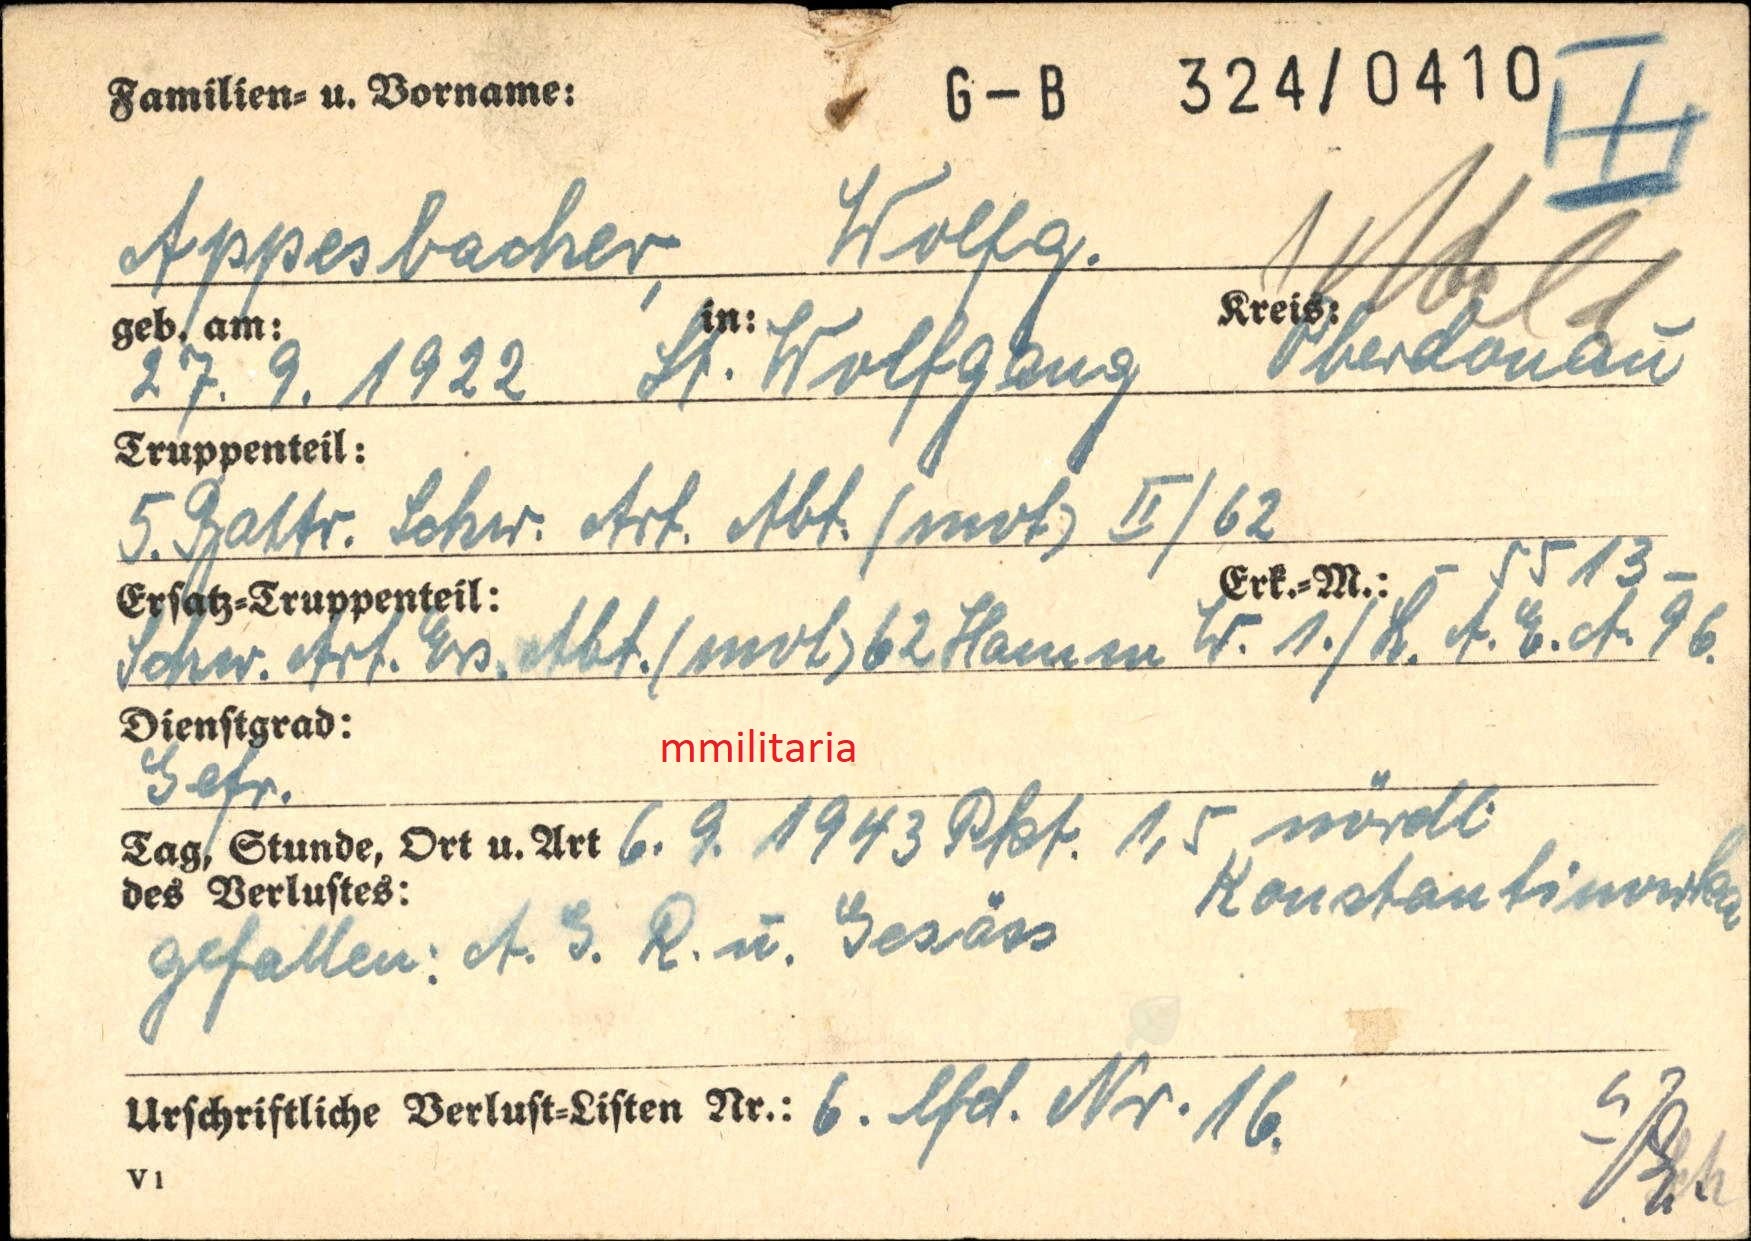 Familien= u. Vorname: G-B 324/0410 III
Appesbacher, Wolfg.
geb. am: in: Kreis:
27. 9. 1922 St. Wolfgang Oberdonau
Truppenteil:
5. Battr. Schw. Art. Abt. (mot) II/62
Ersatz=Truppenteil: Erk.=M.: - 5513 -
Schw. Art. Ers. Abt. (mot) 62 Hamm W. 1./L. A. E. A. 96.
Dienstgrad:
mmilitaria
Gefr.
Tag, Stunde, Ort u. Art 6. 9. 1943 Pkt. 1,5 nördl
des Verlustes: Konstantinowka
gefallen: A. G. R. u. Gesäss
Urschriftliche Verlust=Listen Nr.: 6. lfd. Nr. 16.
V 1